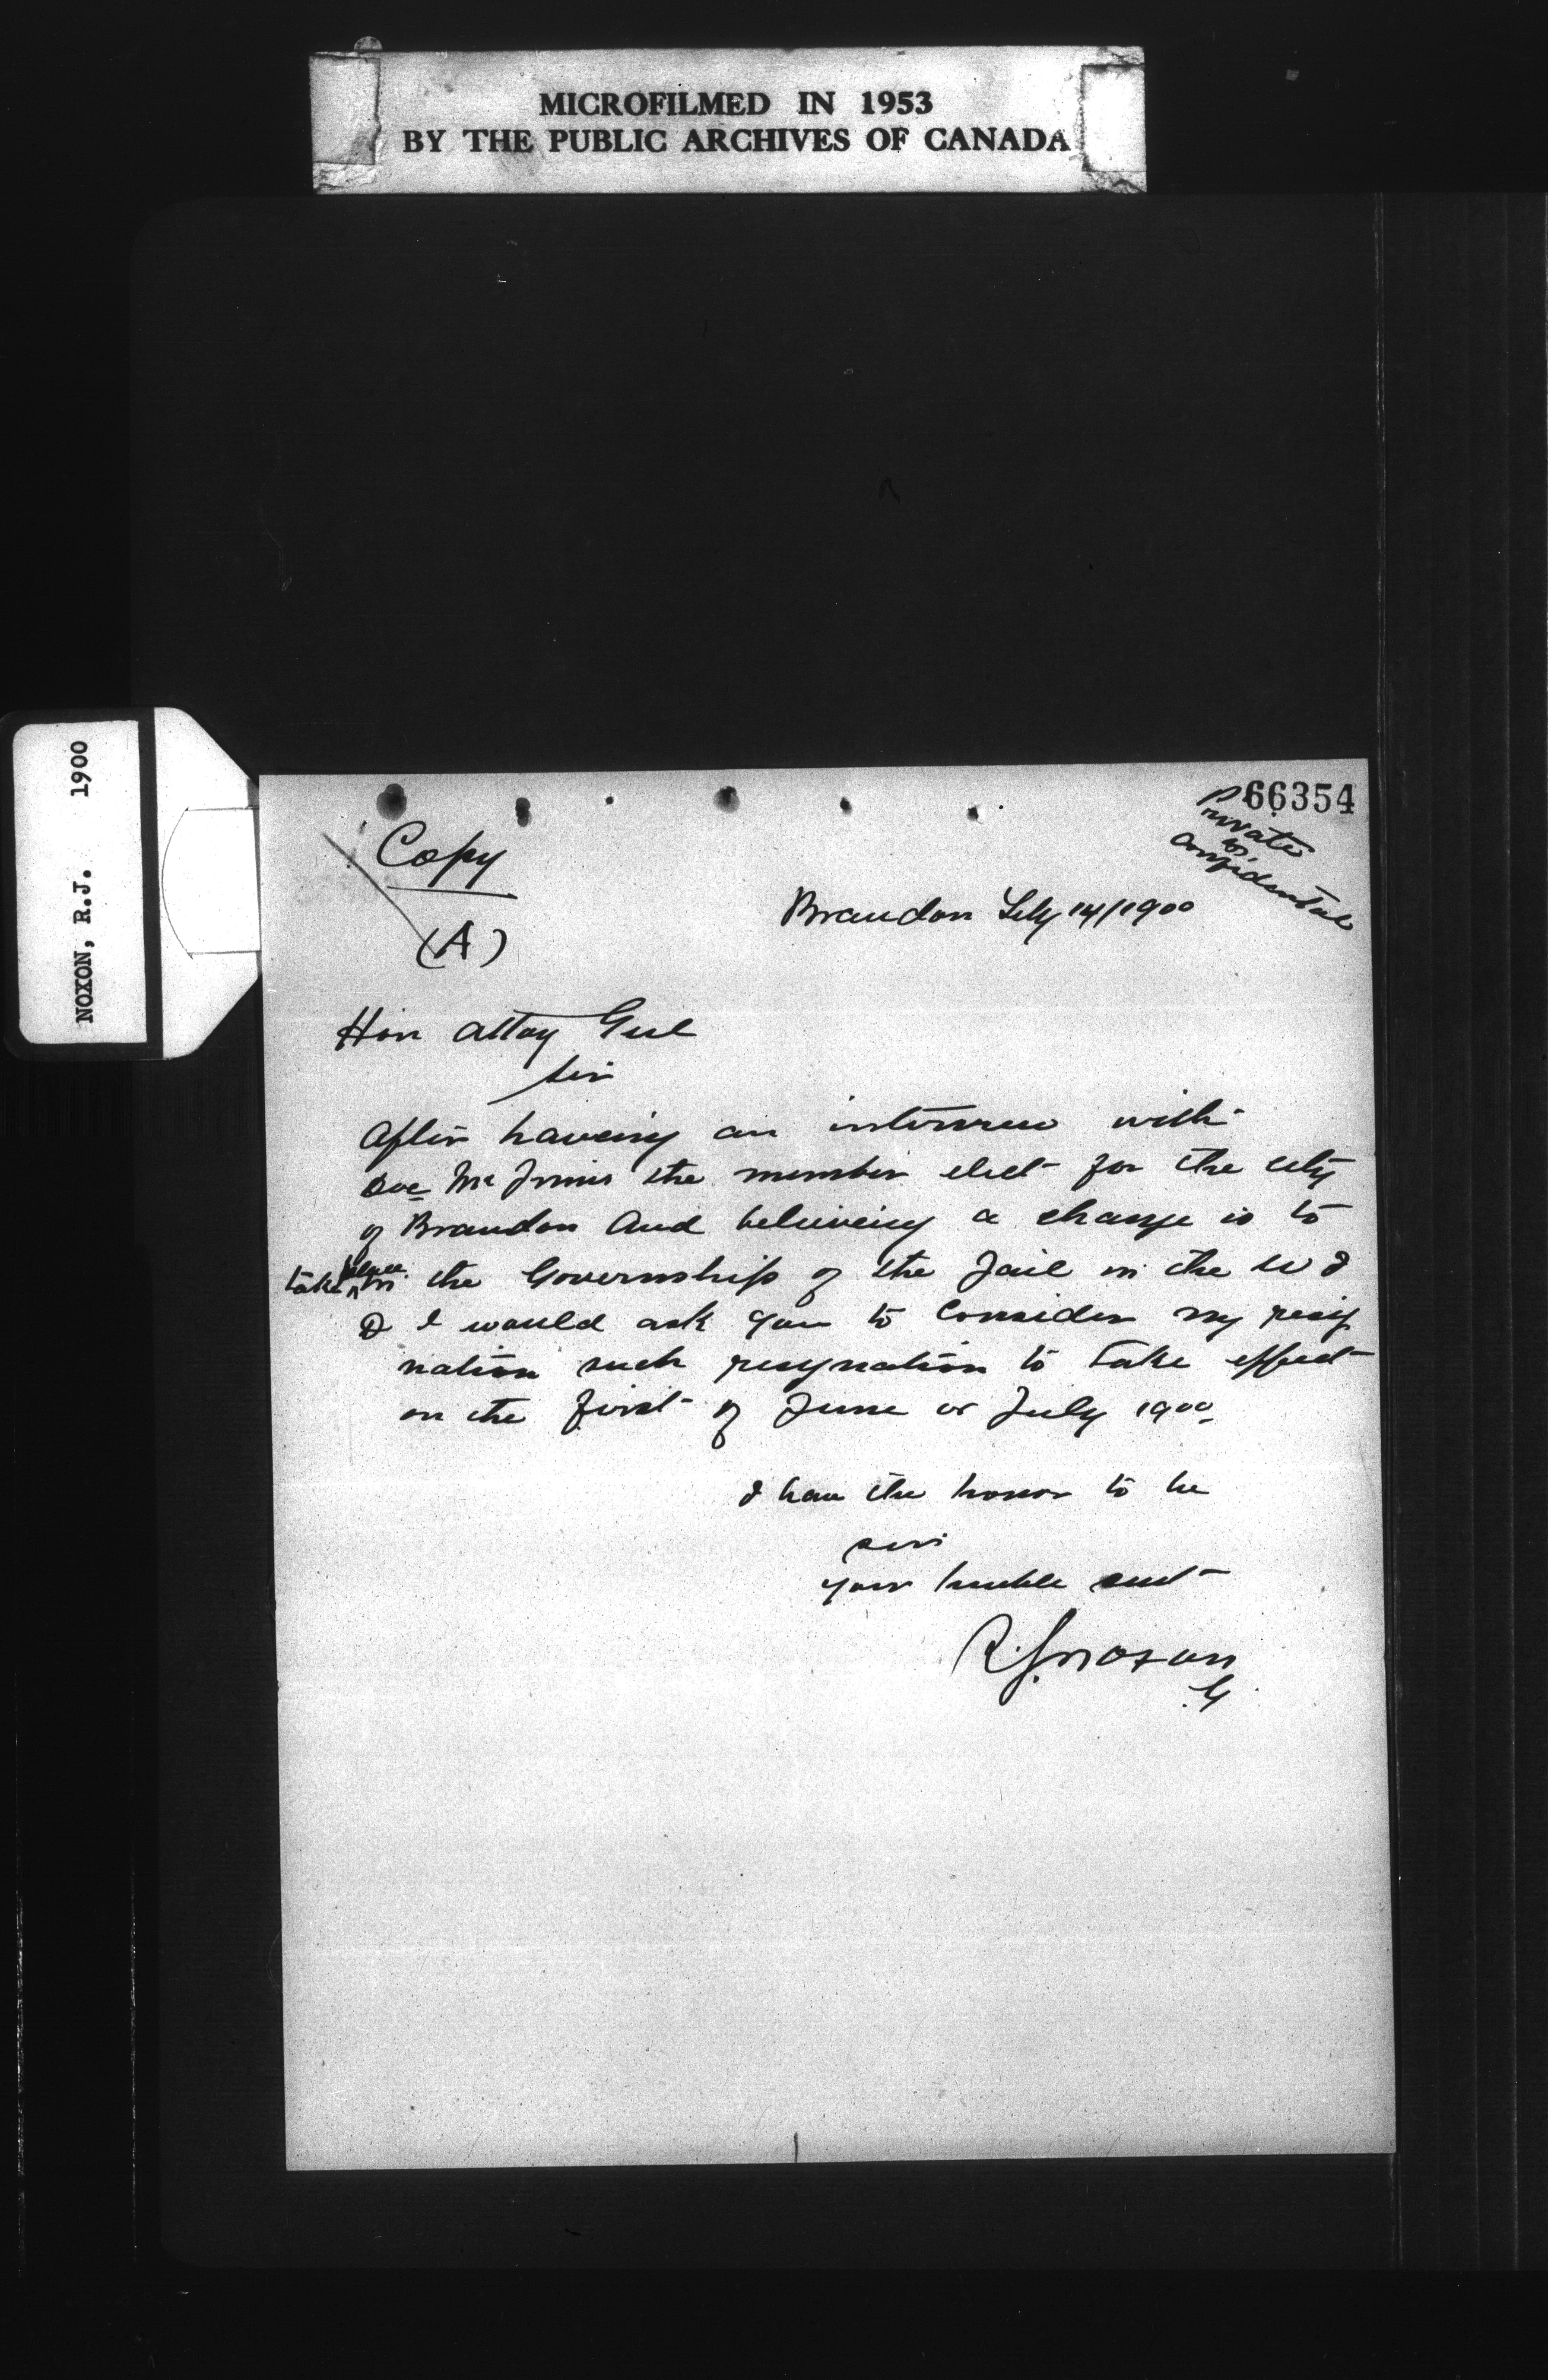 MICROFILMED IN 1953
BY THE PUBLIC ARCHIVES OF CANADA
NOXON, R.J. 1900
66354
Private
Confidental
Copy
(A)
Brandon 14/1900
Hon Attoy Genl
Sir
After haveing an interview with
Mc Innis the member elect for the city
of Brandon And believeing a change is to
take place in the Governship of the Jail in the W J
D I would ask you to Consider my resig
nation such resignation to take effect
on the first of June or July 1900
I have the honor to be
Sir
your humble servt
R.J. Noxon
G